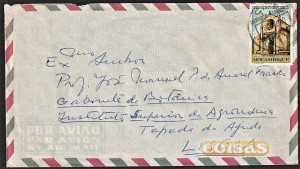 MOÇAMBIQUE
Exmo
Senhor
Prof. José Manuel P. de
Gabinete de Botânica
Instituto Superior de Agronomia
Tapada da Ajuda
Lisboa
POR AVIÃO
PAR AVION
BY AIR MAIL
coisas